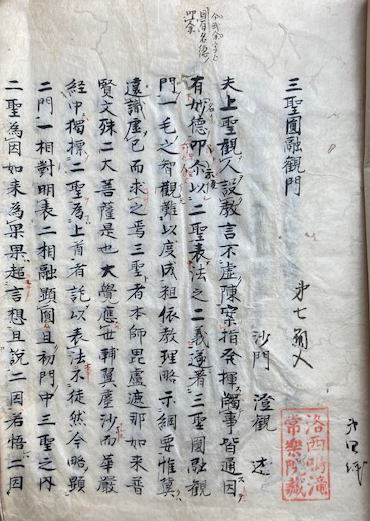 洛西鳴滝
常樂院藏
三聖圓融觀門
沙門 澄觀 述
夫上聖觀人設教言不虛陳案指發揮觸事皆通因
有妙德卬余以二聖表法之二義遂著三聖圓融觀
門一毛之智觀難以度成粗依教理略示綱要惟冀
遠識虛己而求之焉三聖者本師毘盧遮那如來普
賢文殊二大菩薩是也大覺應世輔翼塵沙而華嚴
經中獨標二聖為上首者託以表法不徒然今略顯
二門一相對明表二相融顯圓且初門中三聖之內
二聖為因如來為果果超言想且說二因若悟二因